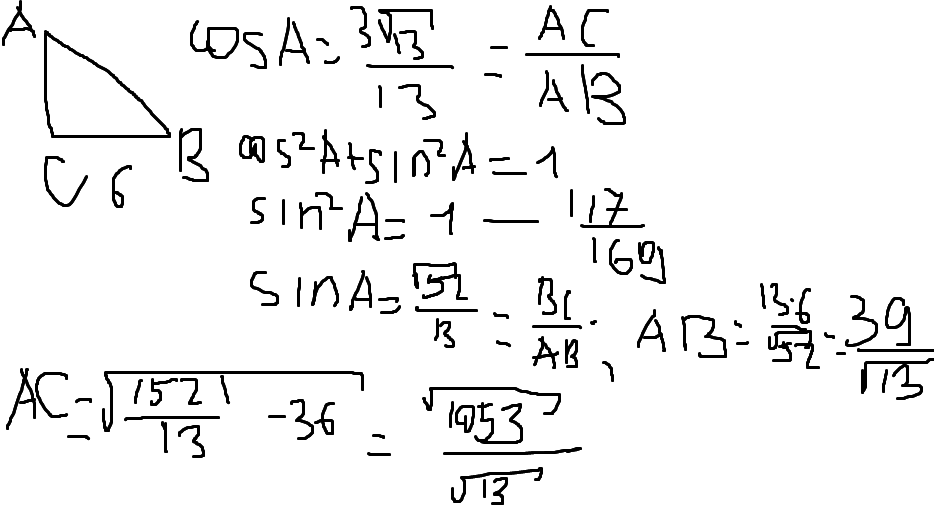 A
cosA = 3√13/13 = AC/AB
C 6 B
cos²A+sin²A=1
sin²A= 1 — 117/169
sinA= √52/13 = BC/AB; AB= 13·6/√52 = 39/√13
AC=√(1521/13 -36) = √1053/√13